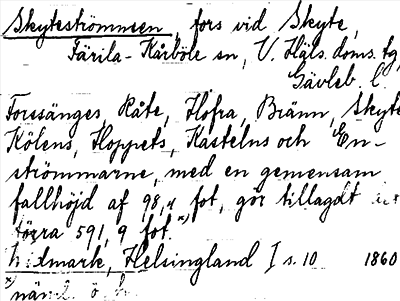 Skyteströmmen, fors vid Skyte,
Färila-Kårböle sn, V. Häls. doms. tg,
Gävleb. l.
Forssänges, Råte, Hofra, Bränn, Skyte
Kölens, Hoppets, Kastelns och En-
strömmarne, med en gemensam
fallhöjd af 98,4 fot, gör tillagdt
torra 591,9 fot.
Widmark, Helsingland I s. 10 1860